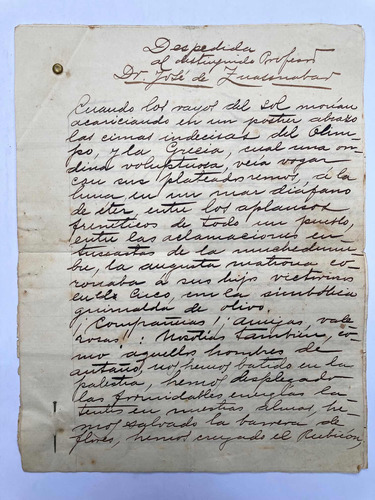 Despedida
al distinguido Profesor
Dr. José de Zuasnabar
Cuando los rayos del sol morían
acariciando en un postrer abrazo
las cimas indecisas del Olim-
po, y la Grecia, cual una on-
dina voluptuosa, veía vogar
con sus plateados remos, á la
luna en un mar diáfano
de éter entre los aplausos
frenéticos de todo un pueblo,
entre las aclamaciones en-
tusiastas de la muchedum-
be, la augusta matrona co-
ronaba a sus hijos victoriosos
en el Circo, con la simbólica
guirnalda de olivo.
¡Compañeras! ¡amigas vale-
rosas!: Nosotras también, có-
mo aquellos hombres de
antaño, nos hemos batido en la
palestra, hemos desplegado
las formidables energías la-
tentes en nuestras almas, he-
mos salvado la barrera de
flores, hemos cruzado el Rubicón,